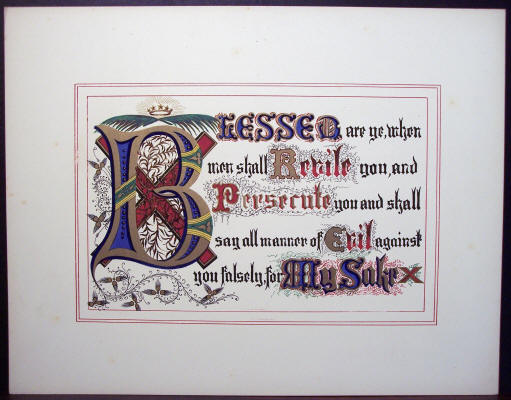 BLESSED are ye, when
men shall Revile you, and
Persecute you and shall
say all manner of Evil against
you falsely, for My Sake